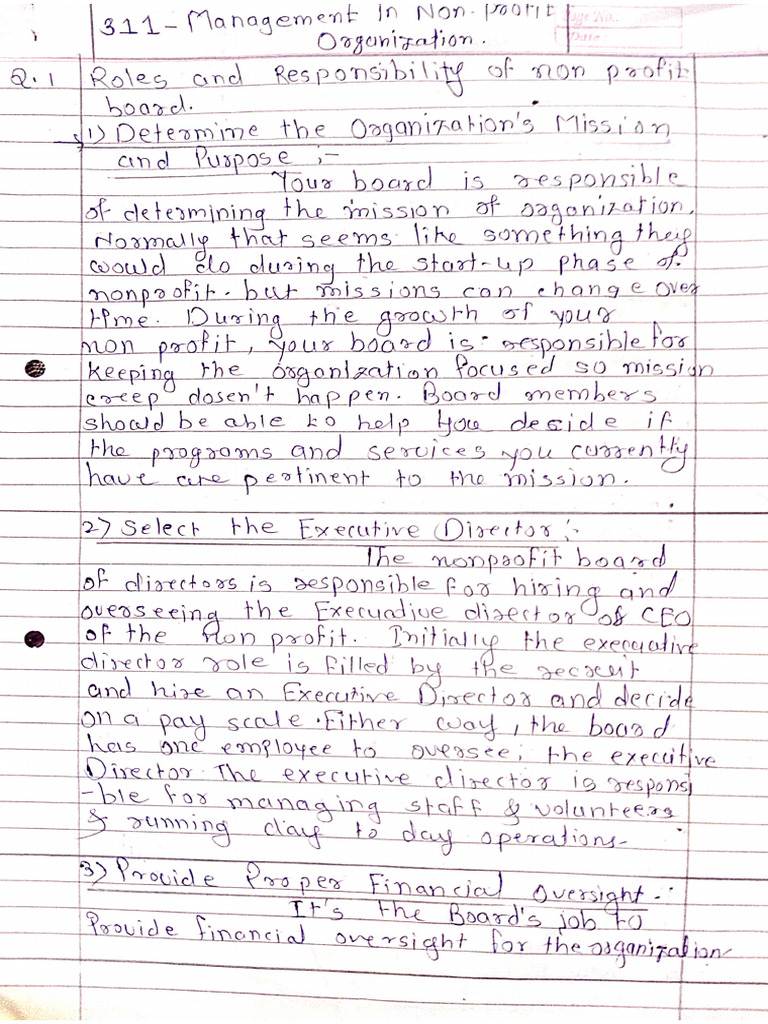 311 - Management In Non-profit
Organization.
Page No..
Date
Q.1 Roles and Responsibility of non profit
board.
1) Determine the Organization's Mission
and Purpose :-
Your board is responsible
of determining the mission of organization.
Normally that seems like something they
would do during the start-up phase of
nonprofit. but missions can change over
time. During the growth of your
non profit, your board is responsible for
keeping the organization focused so mission
creep dosen't happen. Board members
should be able to help you decide if
the programs and services you currently
have are pertinent to the mission.
2) Select the Executive Director :-
The nonprofit board
of directors is responsible for hiring and
overseeing the Execuative director of CEO
of the Non profit. Initially the execuative
director role is filled by the recreuit
and hire an Executive Director and decide
on a pay scale. Either way, the board
has one employee to oversee; the executive
Director. The executive director is respons
-ble for managing staff & volunteers
& running day to day operations-
3) Provide Proper Financial Oversight -:
It's the Board's job to
Provide financial oversight for the organization-